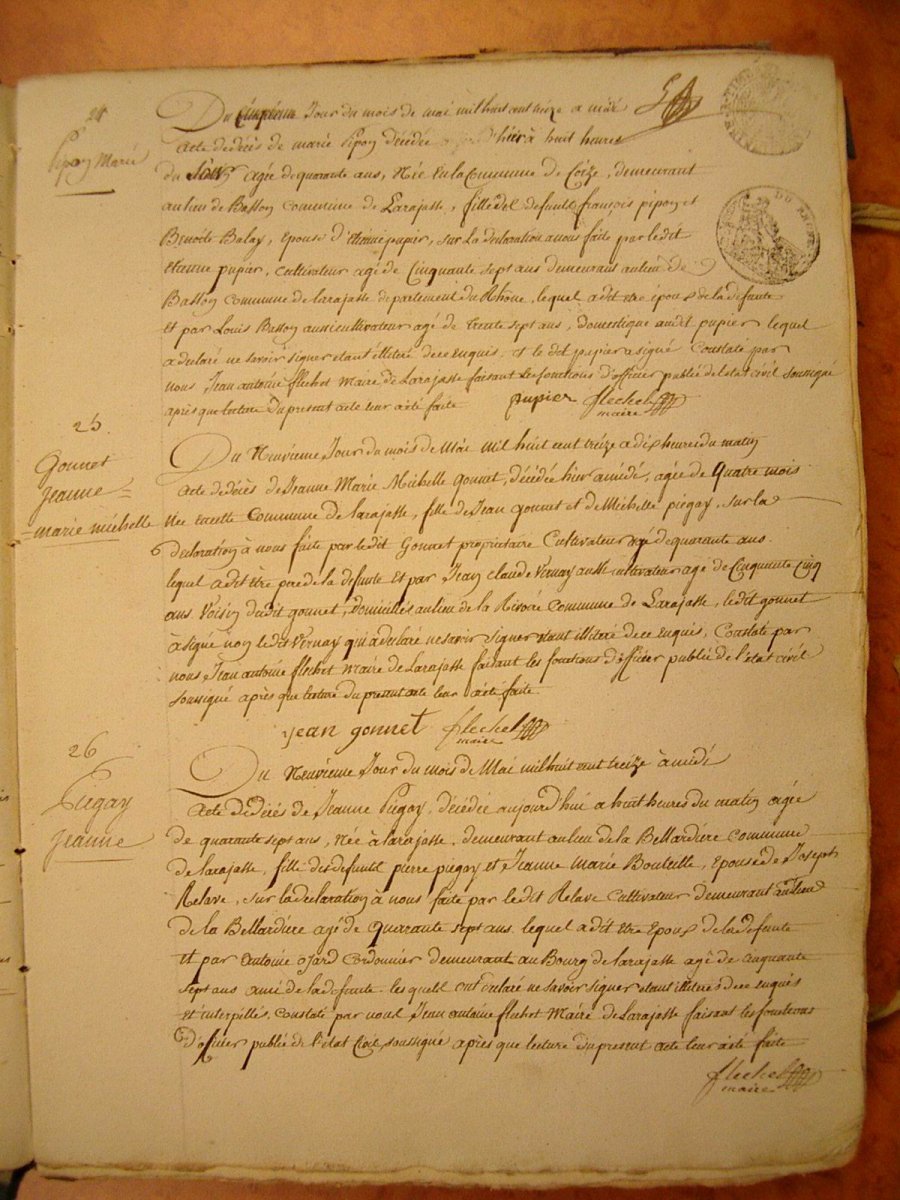 24
Pipon Marie
Du Cinquieme Jour du mois de mai mil huit cent treize a midi
Acte de décès de marie Pipon décédée hier à huit heures
du soir agée de quarante ans, Née en la Commune de Coize, demeurant
au lieu de Basson Commune de Larajasse, fille de defunt françois pipon et
Benoite Balay, Epouse d'Etienne pupier, sur la declaration a nous faite par le dit
Etienne pupier, cultivateur agé de Cinquante sept ans demeurant au lieu de
Basson Commune de larajasse departement du Rhône, lequel a dit être époux de la defunte
et par Louis Basson aussi cultivateur agé de trente sept ans, domestique audit pupier lequel
a declaré ne savoir signer etant illitéré de ce enquis, et le dit pupier a signé Constaté par
nous Jean antoine flechet Maire de Larajasse faisant les fonctions d'officier publié de l'etat civil soussigné
après que lecture du present acte leur a été faite pupier flechet
maire
25
Gonnet
jeanne
marie michelle
Du Neuvieme Jour du mois de Mai Mil huit cent treize a dix heures du matin
Acte de décès de Jeanne Marie Michelle gonnet, décédée hier a midi, agée de quatre mois
Née en cette Commune de larajasse, fille de Jean gonnet et de Michelle piegay, sur la
declaration à nous faite par le dit Gonnet propriétaire Cultivateur agé de quarante ans
lequel a dit être pere de la defunte et par Jean claude Vernay aussi cultivateur agé de Cinquante Cinq
ans Voisin du dit gonnet, domiciliés au lieu de la Rivoire Commune de Larajasse, le dit gonnet
à signé non le dit Vernay qui a declaré ne savoir signer etant illitéré de ce Enquis, Constaté par
nous Jean antoine flechet Maire de Larajasse faisant les fonctions d'officier publié de l'état civil
soussigné après que lecture du present acte leur à été faite
jean gonnet flechet
maire
26
Piegay
jeanne
Du Neuvieme Jour du mois de Mai mil huit cent treize à midi
Acte de décès de Jeanne Piegay, décédée aujourd'hui a huit heures du matin agée
de quarante sept ans, Née à larajasse, demeurant au lieu de la Bellardiere Commune
de larajasse, fille des defunts pierre piegay et Jeanne Marie Bouteille, Epouse de Joseph
Relave, sur la declaration à nous faite par le dit Relave Cultivateur demeurant au lieu
de la Bellardiere agé de Quarante sept ans lequel a dit être Epoux de la defunte
et par antoine ojard Cordonnier demeurant au Bourg de larajasse agé de cinquante
sept ans ami de la defunte lesquels ont declaré ne savoir signer etant illiterés de ce enquis
et interpellés, Constaté par nous Jean antoine flechet Maire de Larajasse faisant les fonctions
d'officier publié de l'état Civil, soussigné après que lecture du present acte leur a été faite
flechet
maire